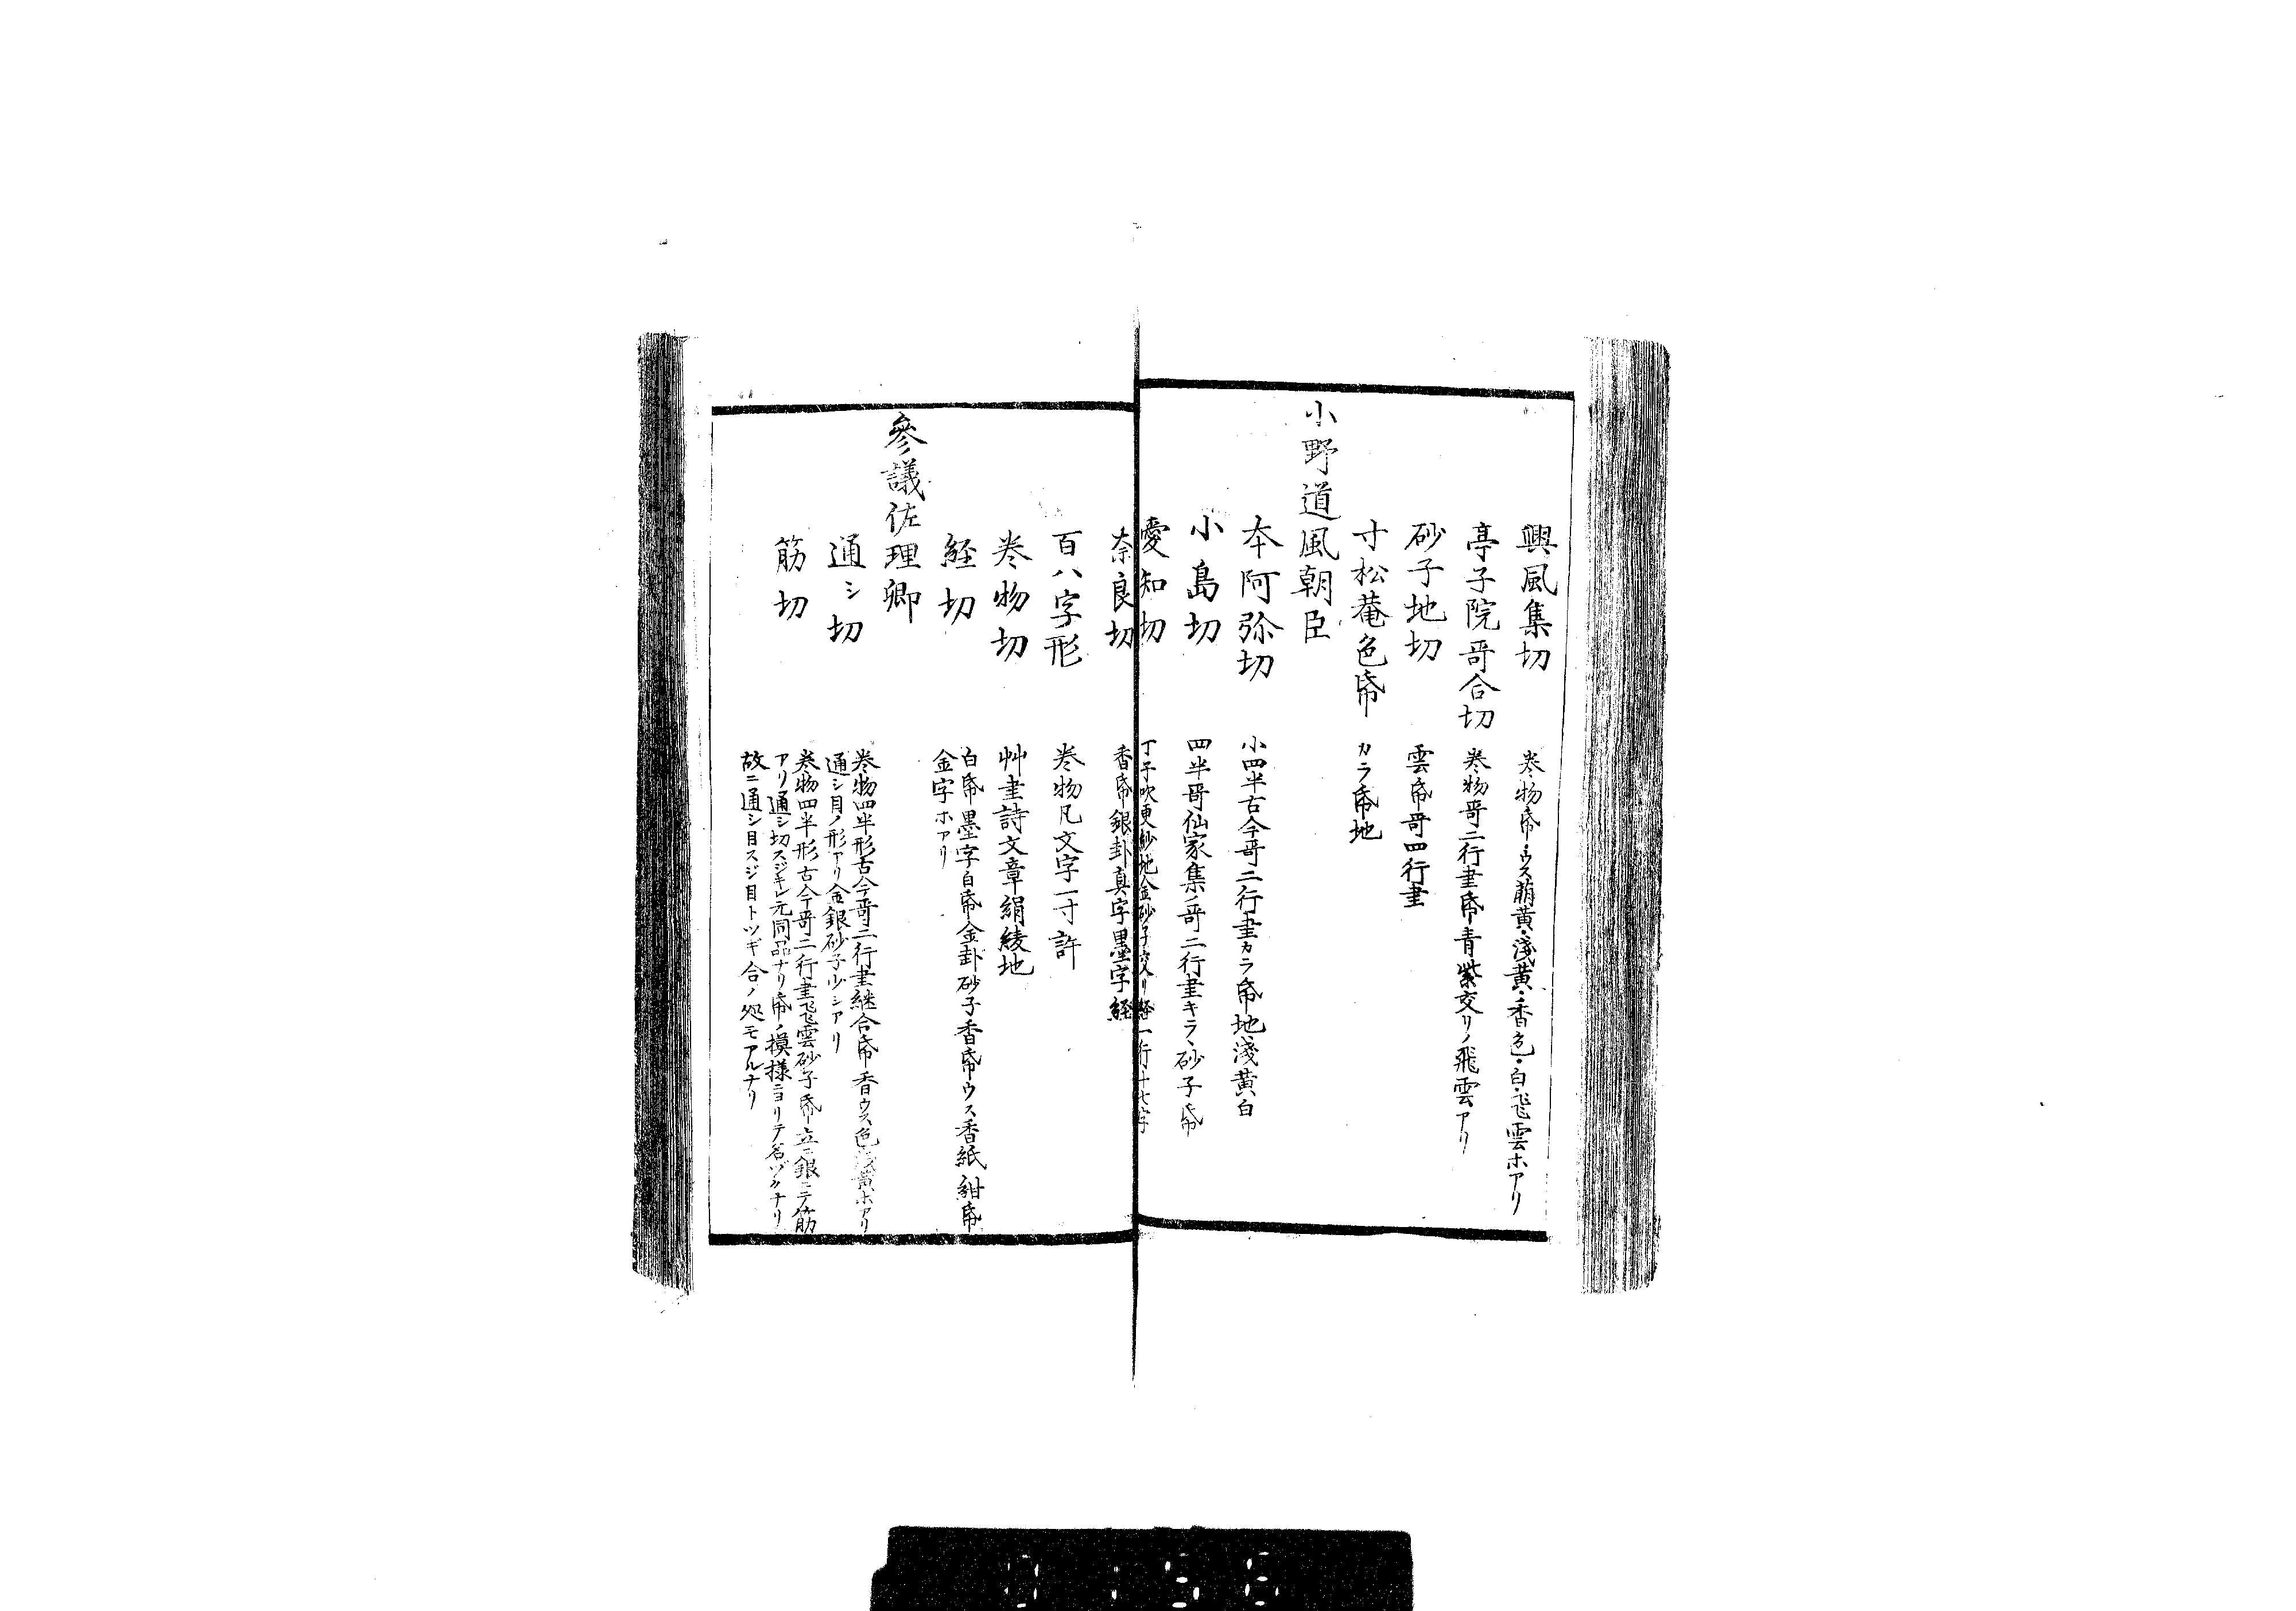 興風集切 巻物帋・ウス萠黄・淺黄・香色・白・飞雲ホアリ
亭子院哥合切 巻物哥二行書帋青紫交リノ飛雲アリ
砂子地切 雲帋哥四行書
寸松菴色帋 カラ帋地
小野道風朝臣
本阿弥切 小四半古今哥二行書カラ帋地淺黄白
小島切 四半哥仙家集ノ哥二行書キラ、砂子帋
愛知切 丁子吹更紗地金砂子 一行十七字
奈良切 香帋銀卦真字墨字経
百八字形 巻物凡文字一寸許
巻物切 艸書詩文章絹綾地
経切 白帋墨字白帋金卦砂子香帋ウス香紙 紺帋
金字ホアリ
參議佐理卿
通シ切 巻物四半形古今哥二行書継合帋香ウス色淺黄ホアリ
通シ目ノ形アリ金銀砂子少シアリ
筋切 巻物四半形古今哥二行書飞雲砂子帋立ニ銀ニテ筋
アリ通シ切スジキレ元同品ナリ帋ノ摸様ニヨリテ名ヅクナリ
故ニ通シ目スジ目トツギ合ノ処モアルナリ